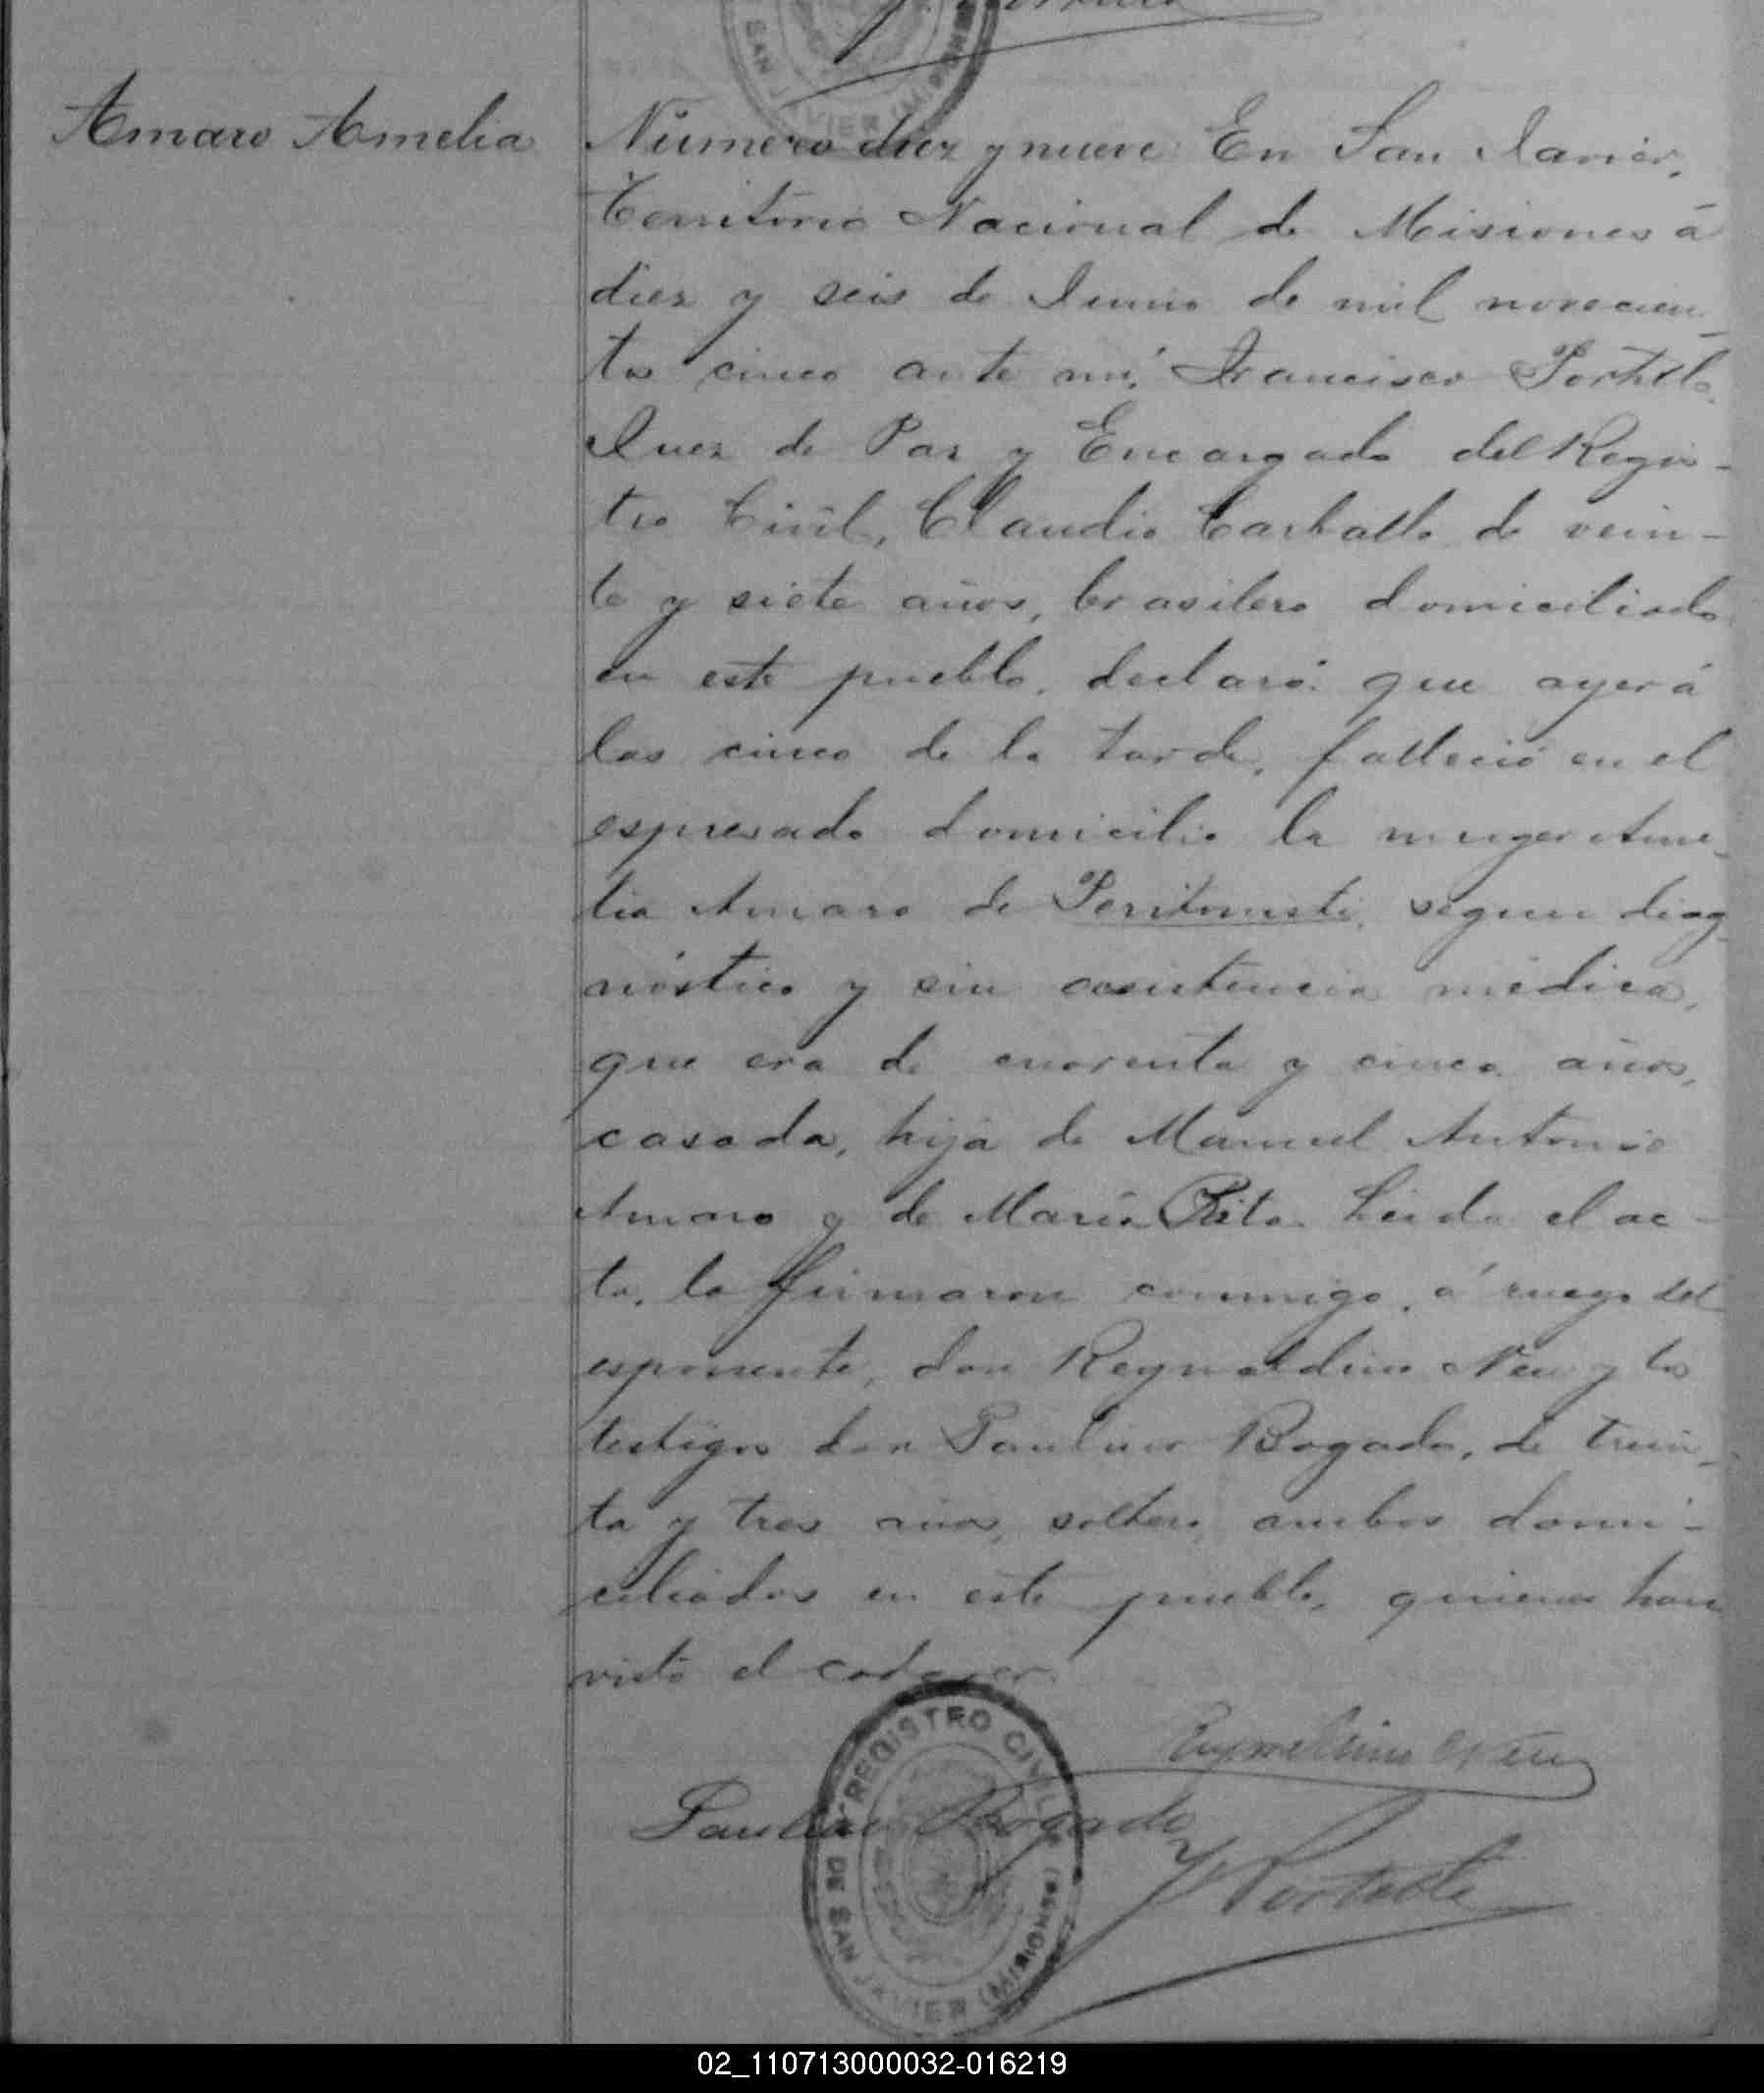 Amaro Amelia
SAN JAVIER (MISIONES)
Número diez y nueve En San Javier,
Territorio Nacional de Misiones á
diez y seis de Junio de mil novecien
tos cinco ante mí, Francisco Portillo,
Juez de Paz y Encargado del Regis-
tro Civil, Claudio Carballo de vein-
te y siete años, brasilero domiciliado
en este pueblo, declaró: que ayer á
las cinco de la tarde, falleció en el
espresado domicilio la muger Ame-
lia Amaro de Peritonitis, segun diag
nóstico y sin asistencia médica,
que era de cuarenta y cinco años,
casada, hija de Manuel Antonio
Amaro y de María Rita. Leida el ac-
ta, la firmaron conmigo, á ruego del
esponente, don Reynaldino Neu y los
testigos don Paulino Bogado, de trein-
ta y tres años, soltero, ambos domi-
ciliados en este pueblo, quienes han
visto el cadaver.
REGISTRO CIVIL
DE SAN JAVIER (MISIONES)
Paulino Bogado
F Portillo
02_110713000032-016219